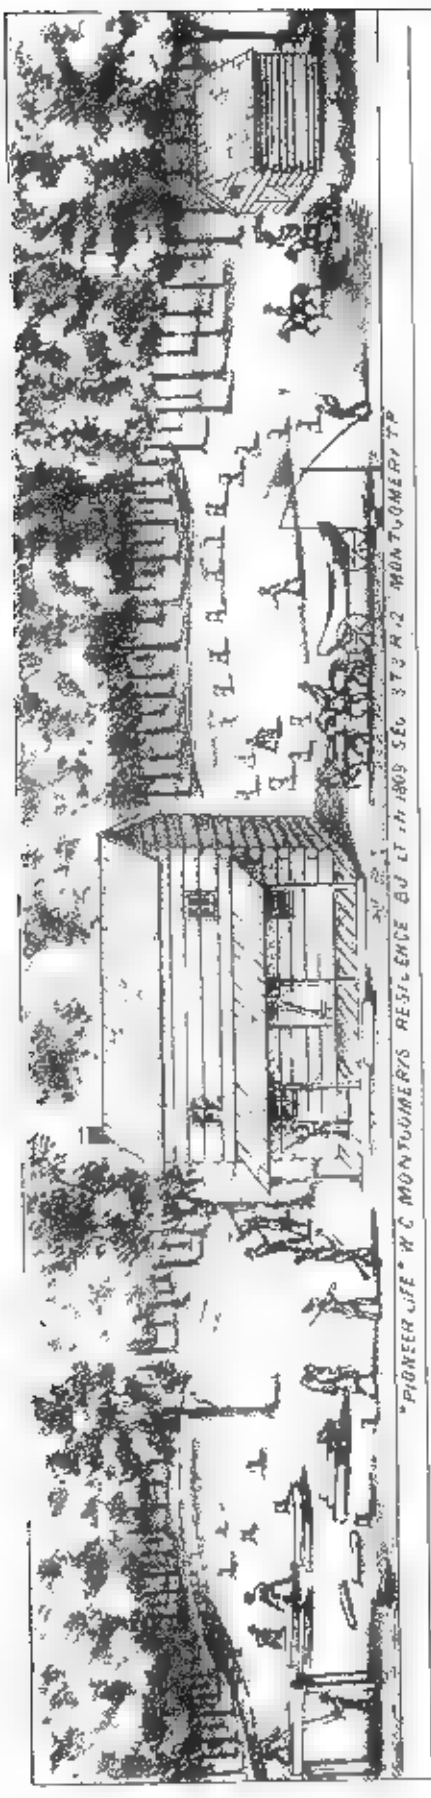 "PIONEER LIFE" W C MONTGOMERYS RESIDENCE BUILT IN 1809 SEC 3 T3 R.12 MONTGOMERY TP